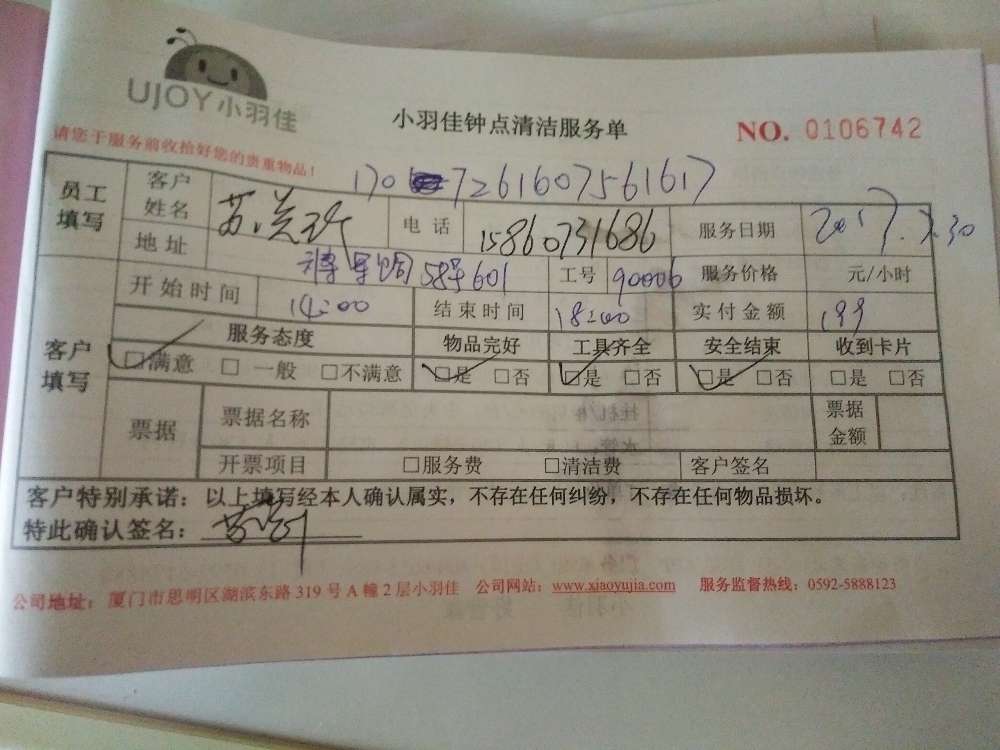 UJOY小羽佳
小羽佳钟点清洁服务单
NO. 0106742
请您于服务前收拾好您的贵重物品！
170 7261607561617
员工填写 客户姓名 苏 电话 15860731686 服务日期 2017.7.30
地址 58号601 工号 90006 服务价格 元/小时
客户填写 开始时间 14:00 结束时间 18:00 实付金额 199
服务态度 物品完好 工具齐全 安全结束 收到卡片
☑满意 □一般 □不满意 ☑是 □否 ☑是 □否 ☑是 □否 □是 □否
票据 票据名称 票据金额
开票项目 □服务费 □清洁费 客户签名
客户特别承诺：以上填写经本人确认属实，不存在任何纠纷，不存在任何物品损坏。
特此确认签名：
公司地址：厦门市思明区湖滨东路319号A幢2层小羽佳 公司网站：www.xiaoyujia.com 服务监督热线：0592-5888123